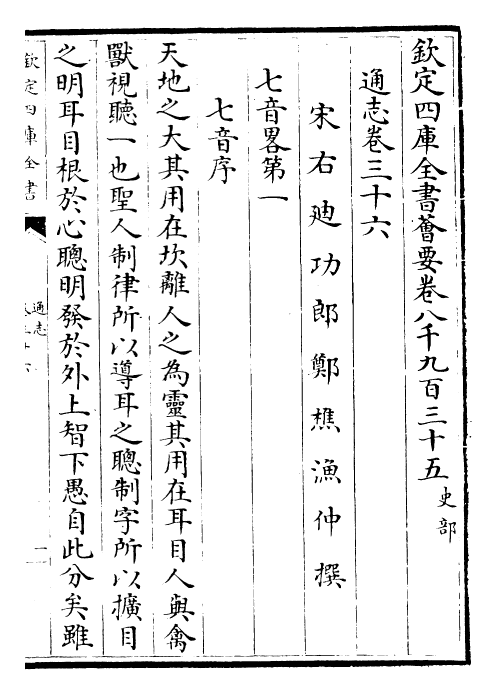 欽定四庫全書薈要卷八千九百三十五史部
通志卷三十六
宋右廸功郎鄭樵漁仲撰
七音畧第一
七音序
天地之大其用在坎離人之為靈其用在耳目人與禽
獸視聽一也聖人制律所以導耳之聰制字所以擴目
之明耳目根於心聰明發於外上智下愚自此分矣雖
欽定四庫全書
通志
一